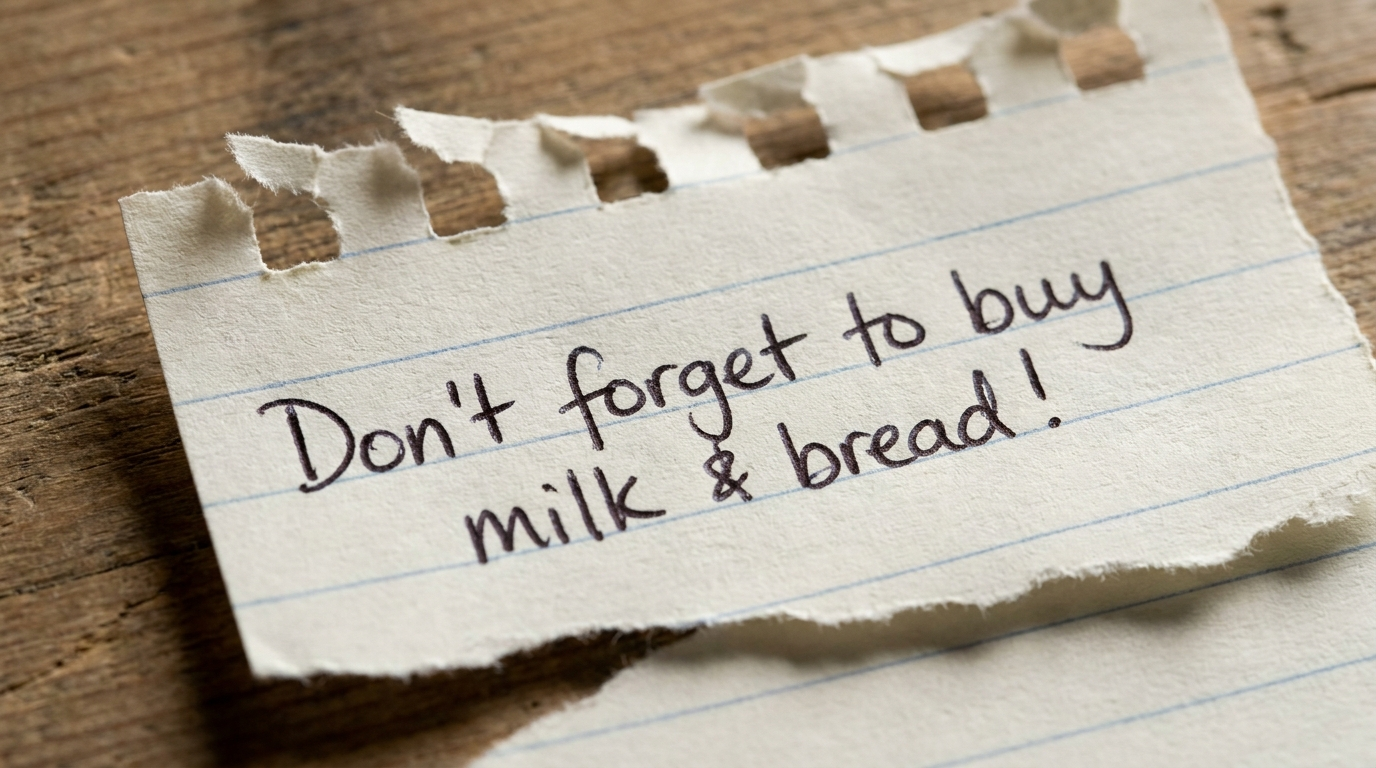 Don't forget to buy
milk & bread!